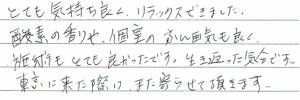 とても気持ち良く、リラックスできました。
酸素の香りや、個室のふん囲気も良く、
施術もとても良かったです。生き返った気分です。
東京に来た際は、また寄らせて頂きます。